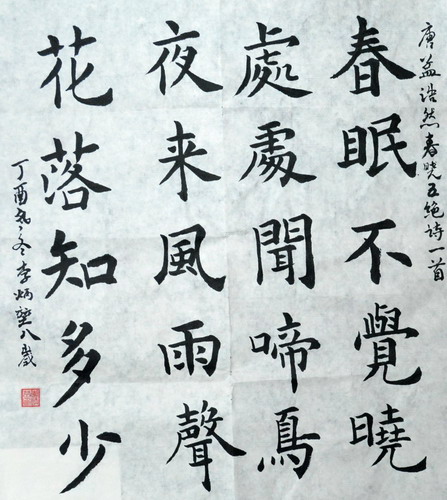 唐孟浩然春晓五绝诗一首
春眠不覺曉
處處聞啼鳥
夜来風雨聲
花落知多少
丁酉年冬李炳八歲